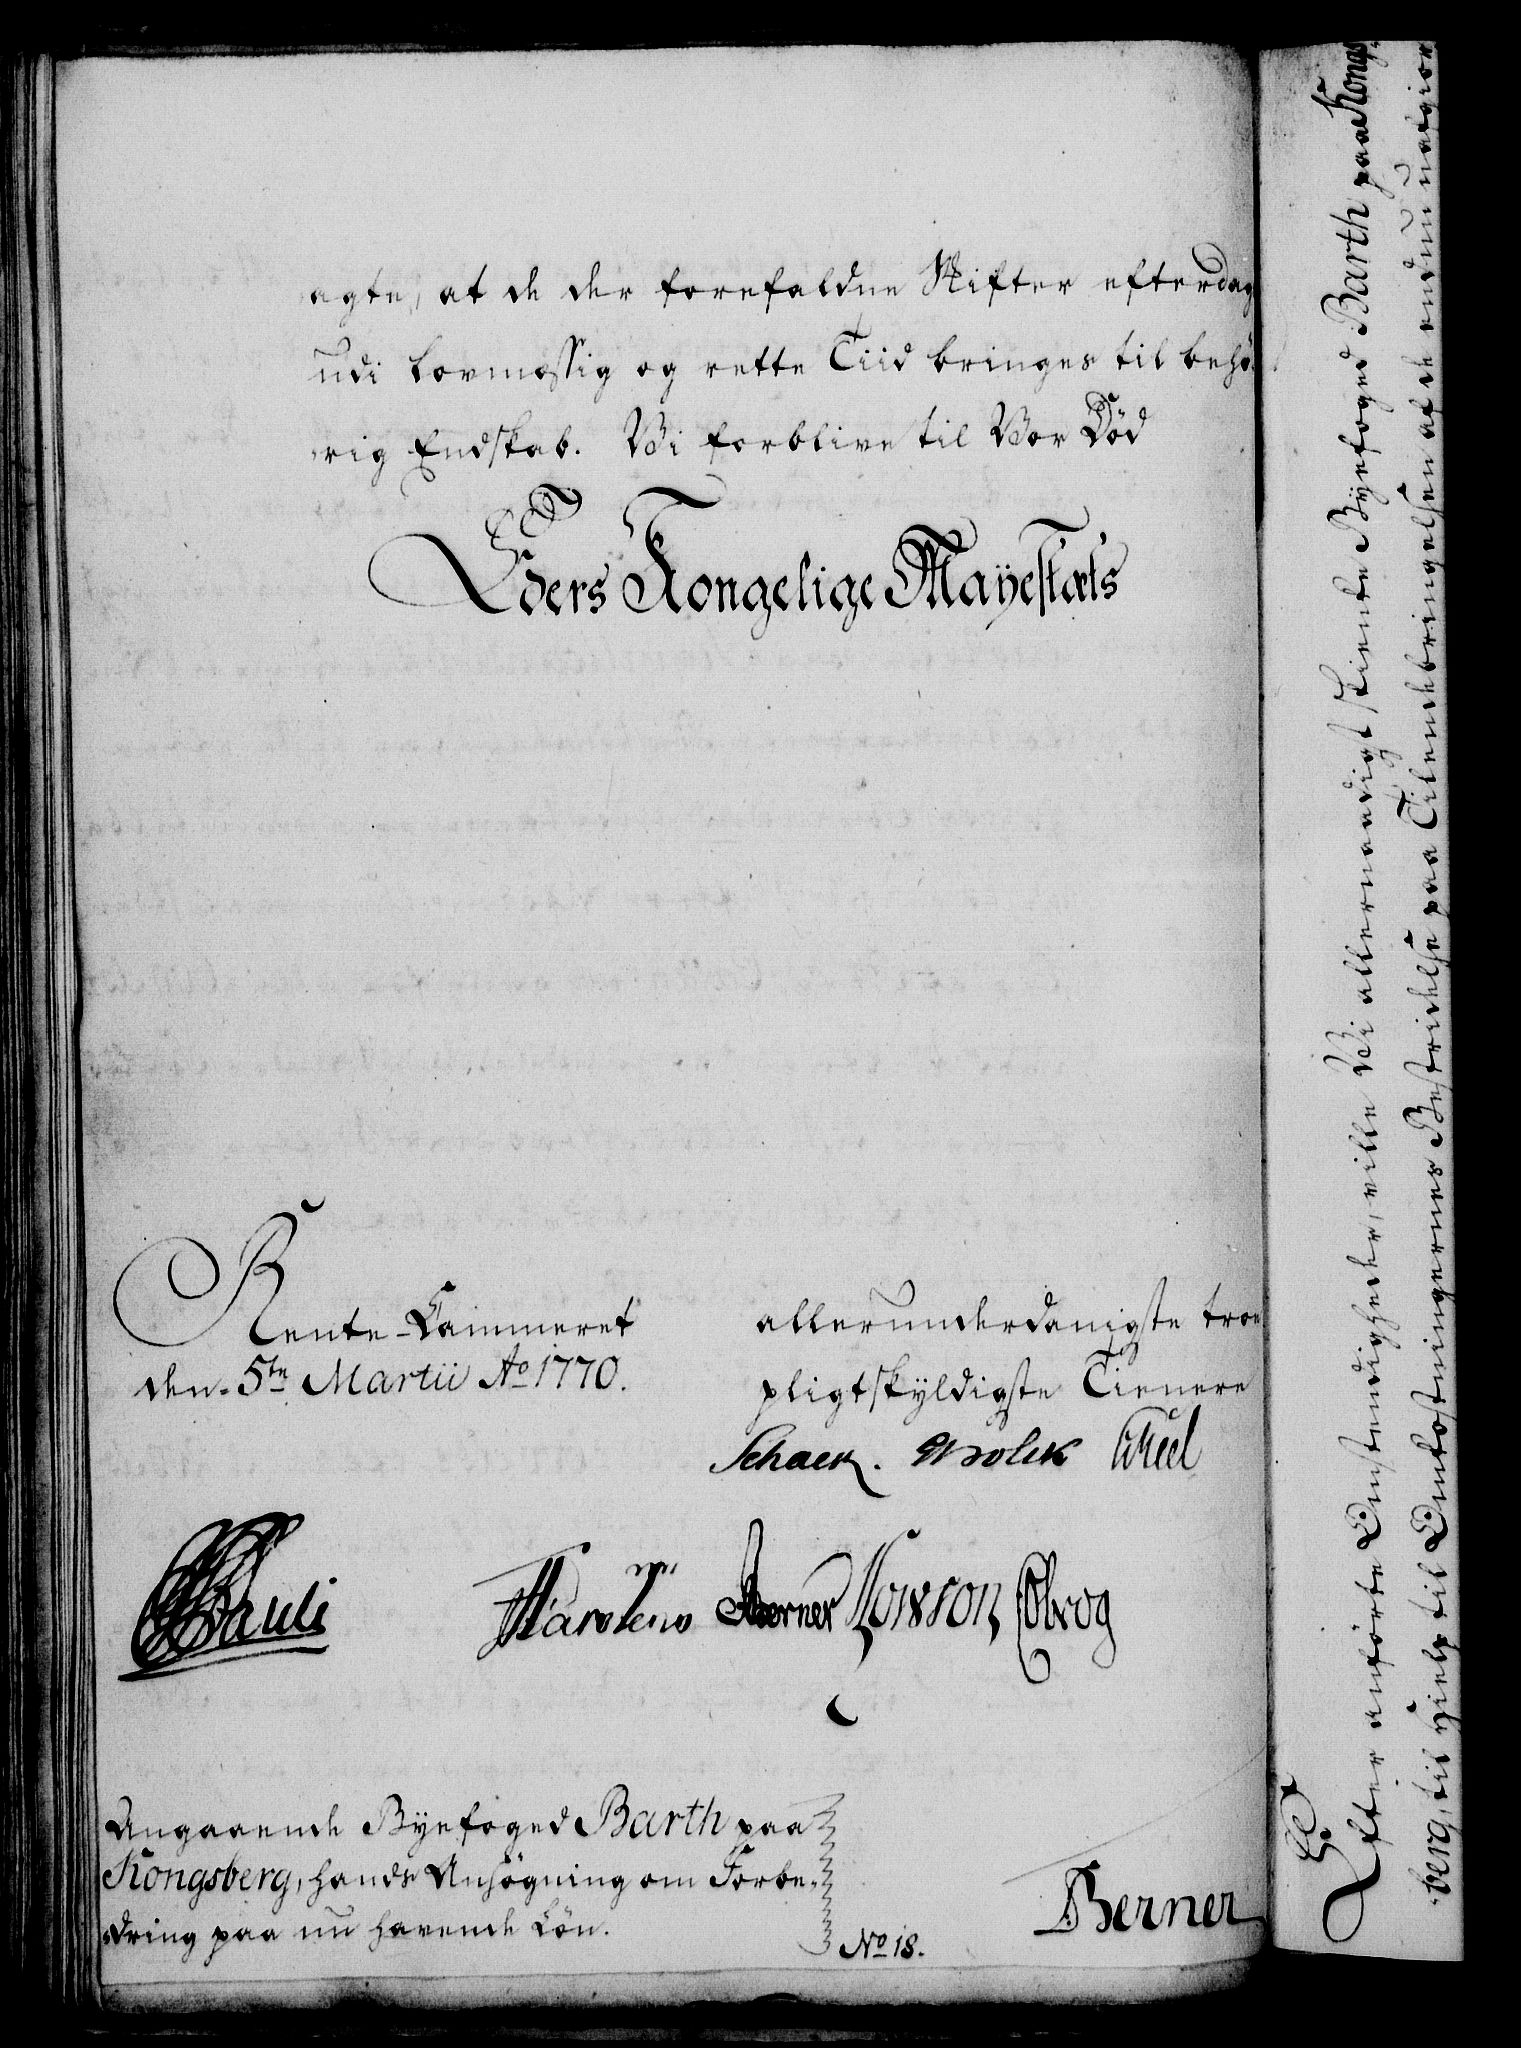 agte, at de der forefaldne Skifter efterdag
udi lovmæssig og rette Tiid bringes til behø-
rig Endskab. Vi forblive til Vor Död
Eders Kongelige Mayestæts
Rente-Cammeret
den 5te Martii Ao 1770.
allerunderdanigste troe
pligtskyldigste Tienere
Schack.
Pauli Berner
Angaaende Byefoged Barth paa
Kongsberg, hands Ansøgning om Forbe-
dring paa nu havende Lön.
No 18.
Berner
Efter anførte Omstendigheder, ville Vi allernaadigst skienke Byefoged Barth paa Kongs-
berg, til Hielp til Omkostningernes Bestridelse paa Tilendebringelsen af de endnu uafgior